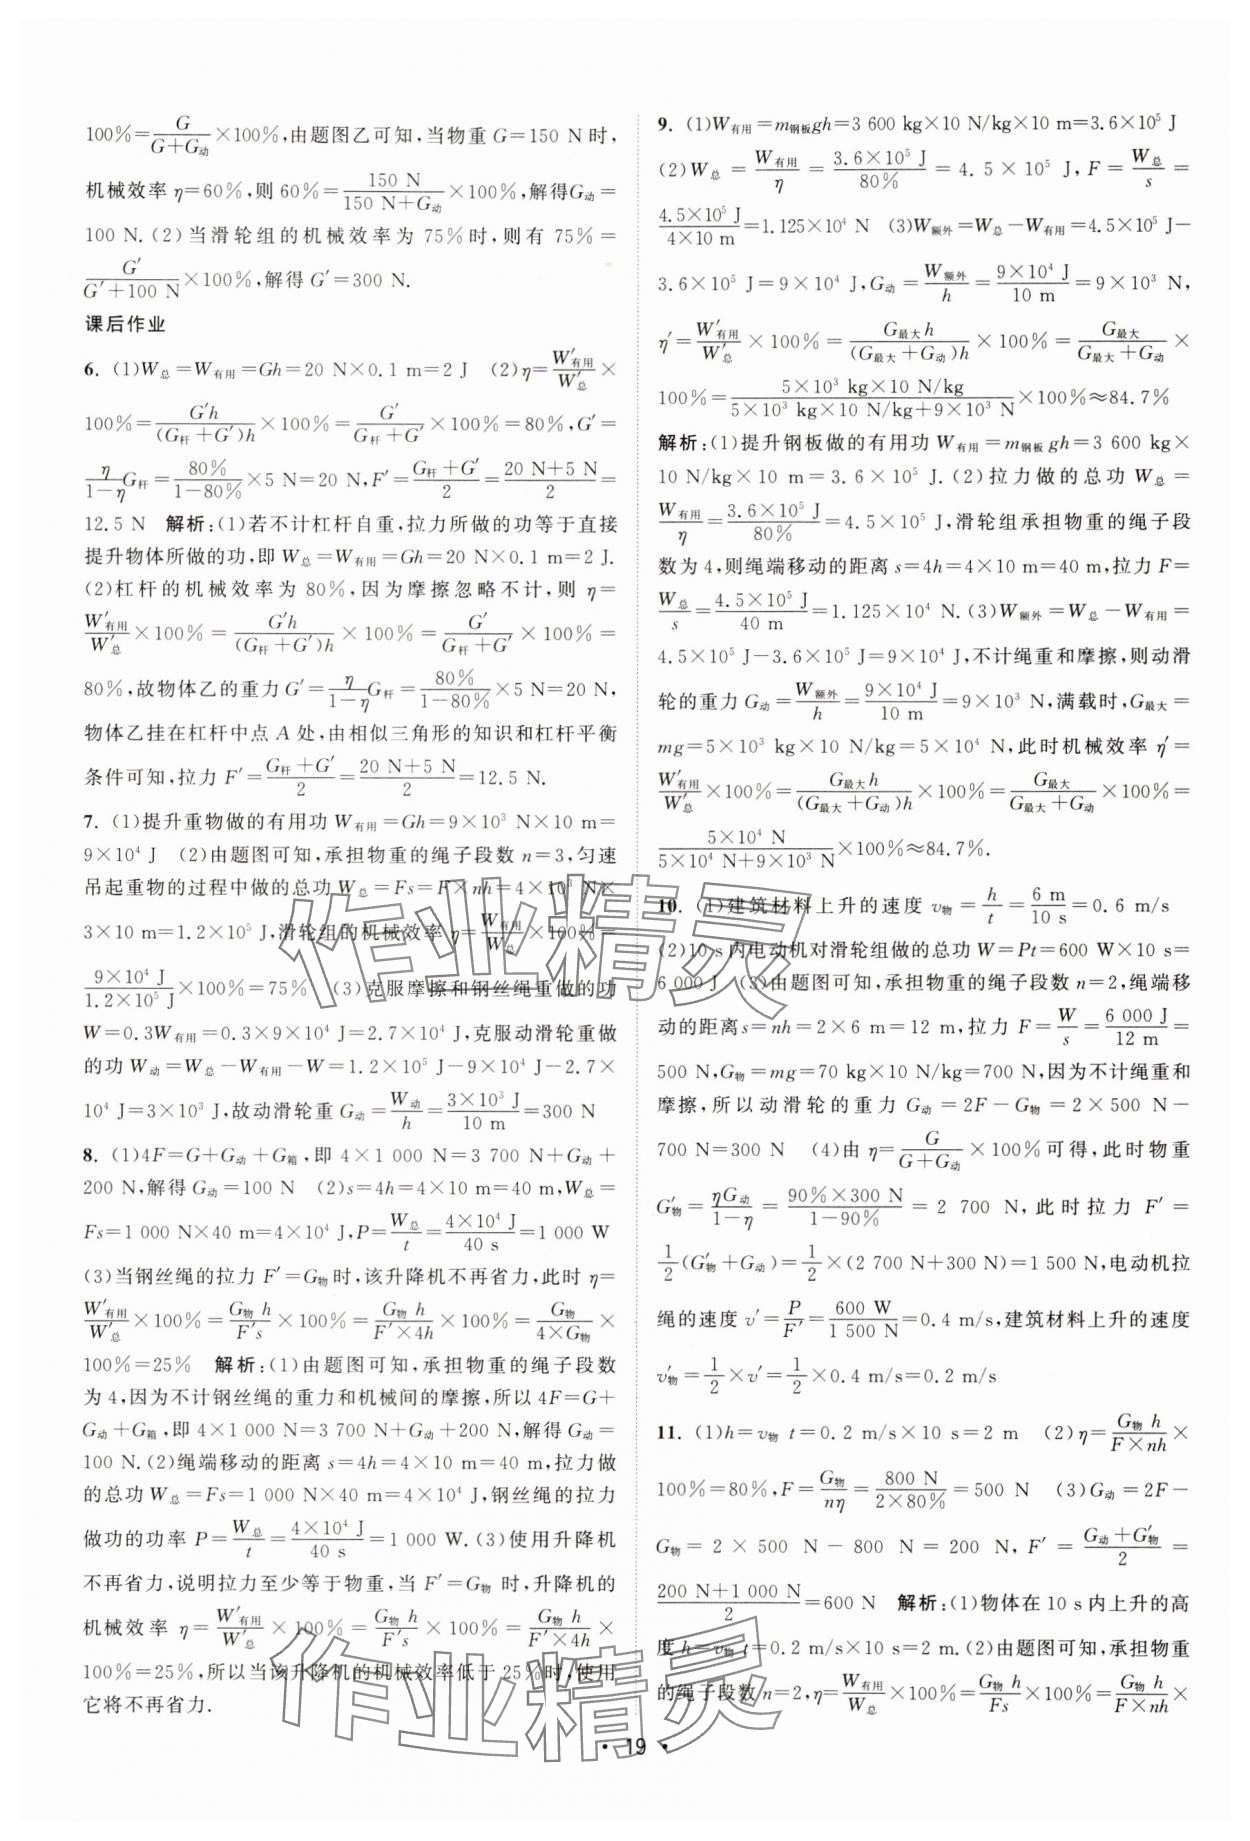 100%=G/(G+G动)×100%,由题图乙可知,当物重 G=150 N 时,
机械效率 η=60%,则 60%=150 N/(150 N+G动)×100%,解得G动=
100 N.(2)当滑轮组的机械效率为 75%时,则有 75%=
G′/(G′+100 N)×100%,解得 G′=300 N.
课后作业
6. (1)W总=W有用=Gh=20 N×0.1 m=2 J (2)η=W′有用/W′总×
100%=G′h/((G杆+G′)h)×100%=G′/(G杆+G′)×100%=80%,G′=
η/(1-η)G杆=80%/(1-80%)×5 N=20 N,F′=(G杆+G′)/2=(20 N+5 N)/2=
12.5 N 解析:(1)若不计杠杆自重,拉力所做的功等于直接
提升物体所做的功,即 W总=W有用=Gh=20 N×0.1 m=2 J.
(2)杠杆的机械效率为 80%,因为摩擦忽略不计,则 η=
W′有用/W′总×100%=G′h/((G杆+G′)h)×100%=G′/(G杆+G′)×100%=
80%,故物体乙的重力 G′=η/(1-η)G杆=80%/(1-80%)×5 N=20 N,
物体乙挂在杠杆中点 A 处,由相似三角形的知识和杠杆平衡
条件可知,拉力 F′=(G杆+G′)/2=(20 N+5 N)/2=12.5 N.
7. (1)提升重物做的有用功 W有用=Gh=9×10³ N×10 m=
9×10⁴ J (2)由题图可知,承担物重的绳子段数 n=3,匀速
吊起重物的过程中做的总功 W总=Fs=F×nh=4×10³ N×
3×10 m=1.2×10⁵ J,滑轮组的机械效率 η=W有用/W总×100%=
9×10⁴ J/(1.2×10⁵ J)×100%=75% (3)克服摩擦和钢丝绳重做的功
W=0.3W有用=0.3×9×10⁴ J=2.7×10⁴ J,克服动滑轮重做
的功 W动=W总-W有用-W=1.2×10⁵ J-9×10⁴ J-2.7×
10⁴ J=3×10³ J,故动滑轮重 G动=W动/h=3×10³ J/10 m=300 N
8. (1)4F=G+G动+G箱,即 4×1 000 N=3 700 N+G动+
200 N,解得 G动=100 N (2)s=4h=4×10 m=40 m,W总=
Fs=1 000 N×40 m=4×10⁴ J,P=W总/t=4×10⁴ J/40 s=1 000 W
(3)当钢丝绳的拉力 F′=G物时,该升降机不再省力,此时 η=
W′有用/W′总×100%=G物h/F′s×100%=G物h/(F′×4h)×100%=G物/(4×G物)×
100%=25% 解析:(1)由题图可知,承担物重的绳子段数
为 4,因为不计钢丝绳的重力和机械间的摩擦,所以 4F=G+
G动+G箱,即 4×1 000 N=3 700 N+G动+200 N,解得 G动=
100 N.(2)绳端移动的距离 s=4h=4×10 m=40 m,拉力做
的总功 W总=Fs=1 000 N×40 m=4×10⁴ J,钢丝绳的拉力
做功的功率 P=W总/t=4×10⁴ J/40 s=1 000 W.(3)使用升降机
不再省力,说明拉力至少等于物重,当 F′=G物 时,升降机的
机械效率 η=W′有用/W′总×100%=G物h/F′s×100%=G物h/(F′×4h)×
100%=25%,所以当该升降机的机械效率低于 25%时,使用
它将不再省力.
9. (1)W有用=m钢板gh=3 600 kg×10 N/kg×10 m=3.6×10⁵ J
(2)W总=W有用/η=3.6×10⁵ J/80%=4.5×10⁵ J,F=W总/s=
4.5×10⁵ J/(4×10 m)=1.125×10⁴ N (3)W额外=W总-W有用=4.5×10⁵ J-
3.6×10⁵ J=9×10⁴ J,G动=W额外/h=9×10⁴ J/10 m=9×10³ N,
η′=W′有用/W′总×100%=G最大h/((G最大+G动)h)×100%=G最大/(G最大+G动)×
100%=5×10³ kg×10 N/kg/(5×10³ kg×10 N/kg+9×10³ N)×100%≈84.7%
解析:(1)提升钢板做的有用功 W有用=m钢板gh=3 600 kg×
10 N/kg×10 m=3.6×10⁵ J.(2)拉力做的总功 W总=
W有用/η=3.6×10⁵ J/80%=4.5×10⁵ J,滑轮组承担物重的绳子段
数为 4,则绳端移动的距离 s=4h=4×10 m=40 m,拉力 F=
W总/s=4.5×10⁵ J/40 m=1.125×10⁴ N.(3)W额外=W总-W有用=
4.5×10⁵ J-3.6×10⁵ J=9×10⁴ J,不计绳重和摩擦,则动滑
轮的重力 G动=W额外/h=9×10⁴ J/10 m=9×10³ N,满载时,G最大=
mg=5×10³ kg×10 N/kg=5×10⁴ N,此时机械效率 η′=
W′有用/W′总×100%=G最大h/((G最大+G动)h)×100%=G最大/(G最大+G动)×100%=
5×10⁴ N/(5×10⁴ N+9×10³ N)×100%≈84.7%.
10. (1)建筑材料上升的速度 v物=h/t=6 m/10 s=0.6 m/s
(2)10 s内电动机对滑轮组做的总功 W=Pt=600 W×10 s=
6 000 J (3)由题图可知,承担物重的绳子段数 n=2,绳端移
动的距离s=nh=2×6 m=12 m,拉力 F=W/s=6 000 J/12 m=
500 N,G物=mg=70 kg×10 N/kg=700 N,因为不计绳重和
摩擦,所以动滑轮的重力 G动=2F-G物=2×500 N-
700 N=300 N (4)由 η=G/(G+G动)×100%可得,此时物重
G′物=ηG动/(1-η)=90%×300 N/(1-90%)=2 700 N,此时拉力 F′=
1/2(G′物+G动)=1/2×(2 700 N+300 N)=1 500 N,电动机拉
绳的速度 v′=P/F′=600 W/1 500 N=0.4 m/s,建筑材料上升的速度
v′物=1/2×v′=1/2×0.4 m/s=0.2 m/s
11. (1)h=v物 t=0.2 m/s×10 s=2 m (2)η=G物h/(F×nh)×
100%=80%,F=G物/nη=800 N/(2×80%)=500 N (3)G动=2F-
G物=2×500 N-800 N=200 N,F′=(G动+G′物)/2=
(200 N+1 000 N)/2=600 N 解析:(1)物体在 10 s内上升的高
度 h=v物 t=0.2 m/s×10 s=2 m.(2)由题图可知,承担物重
的绳子段数 n=2,η=W有用/W总×100%=G物h/Fs×100%=G物h/(F×nh)×
· 19 ·
作业精灵
作业精灵